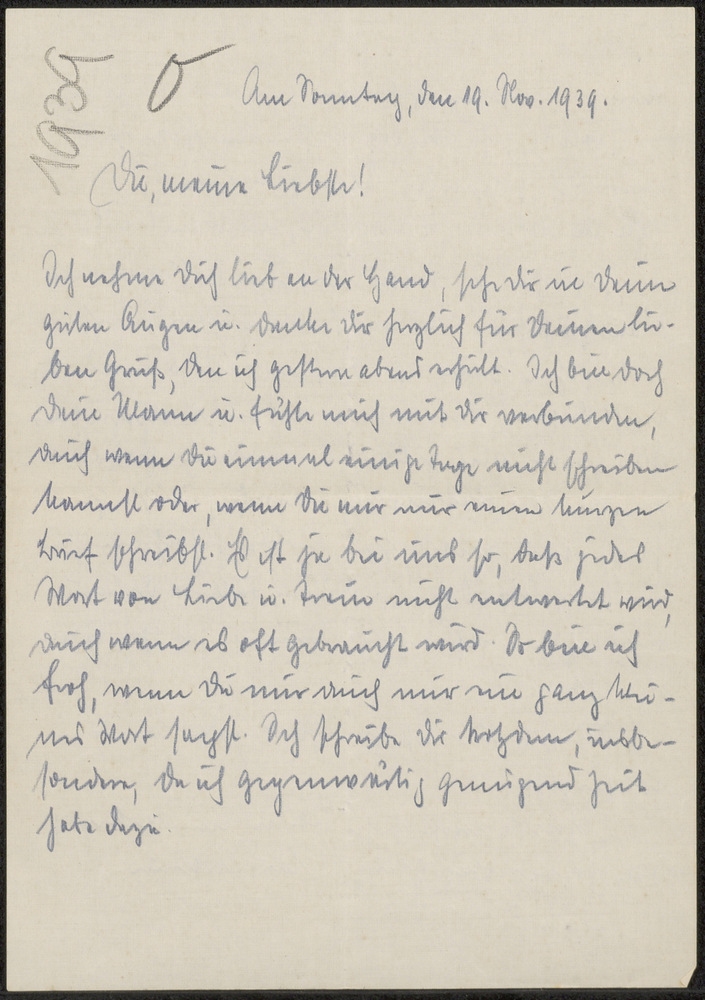 1939
Am Sonntag, den 19. Nov. 1939.
Du, meine Liebste!
Ich nehme Dich lieb an der Hand, sehe Dir in Deine
guten Augen u. danke Dir herzlich für Deinen lie-
ben Gruß, den ich gestern abend erhielt. Ich bin doch
Dein Mann u. fühle mich mit Dir verbunden,
auch wenn Du einmal einige Tage nicht schreiben
kannst oder, wenn Du mir nur einen kurzen
Brief schreibst. Es ist ja bei uns so, daß jedes
Wort von Liebe u. Treue nicht entwertet wird,
auch wenn es oft gebraucht wird. So bin ich
froh, wenn Du mir auch nur ein ganz klei-
nes Wort sagst. Ich schreibe Dir trotzdem, insbe-
sondere, da ich gegenwärtig genügend Zeit
habe dazu.